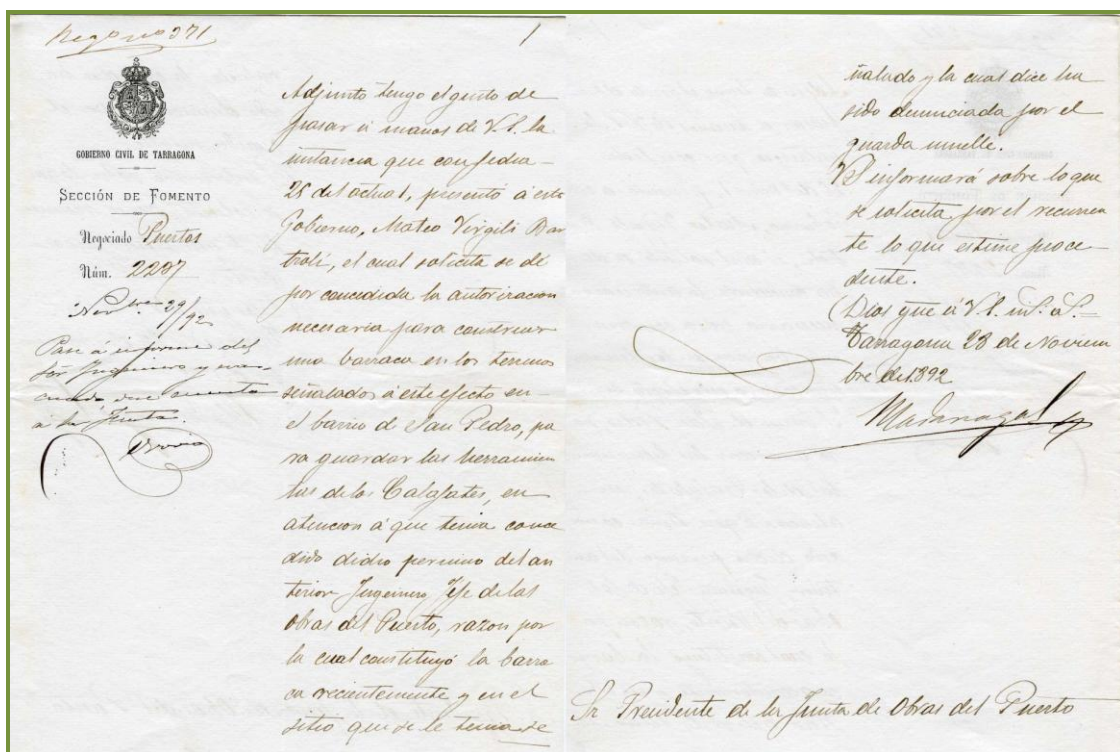 Negdo no 371
1
GOBIERNO CIVIL DE TARRAGONA
SECCIÓN DE FOMENTO
Negociado Puertos
Núm. 2207
Nbre 29/92
Pase á informe del
Sor Ingeniero y
cuenta
á la Junta.
Adjunto tengo el gusto de
pasar á manos de V.S. la
instancia que con fecha
25 del actual, presentó á este
Gobierno, Mateo Virgili Bar
trolí, el cual solicita se dé
por concedida la autorizacion
necesaria para construir
una barraca en los terrenos
señalados á este efecto en
el barrio de San Pedro, pa
ra guardar las herramien
tas de los Calafates, en
atencion á que tenia conce
dido dicho permiso del an
terior Ingeniero Jefe de las
Obras del Puerto, razon por
la cual constituyó la barra
ca recientemente y en el
sitio que se le tenia se
ñalado y la cual dice ha
sido denunciada por el
guarda muelle.
VS informará sobre lo que
se solicita por el recurren
te lo que estime proce
dente.
Dios gue á V.S. ms. as.
Tarragona 28 de Noviem
bre de 1892
Sr Presidente de la Junta de Obras del Puerto